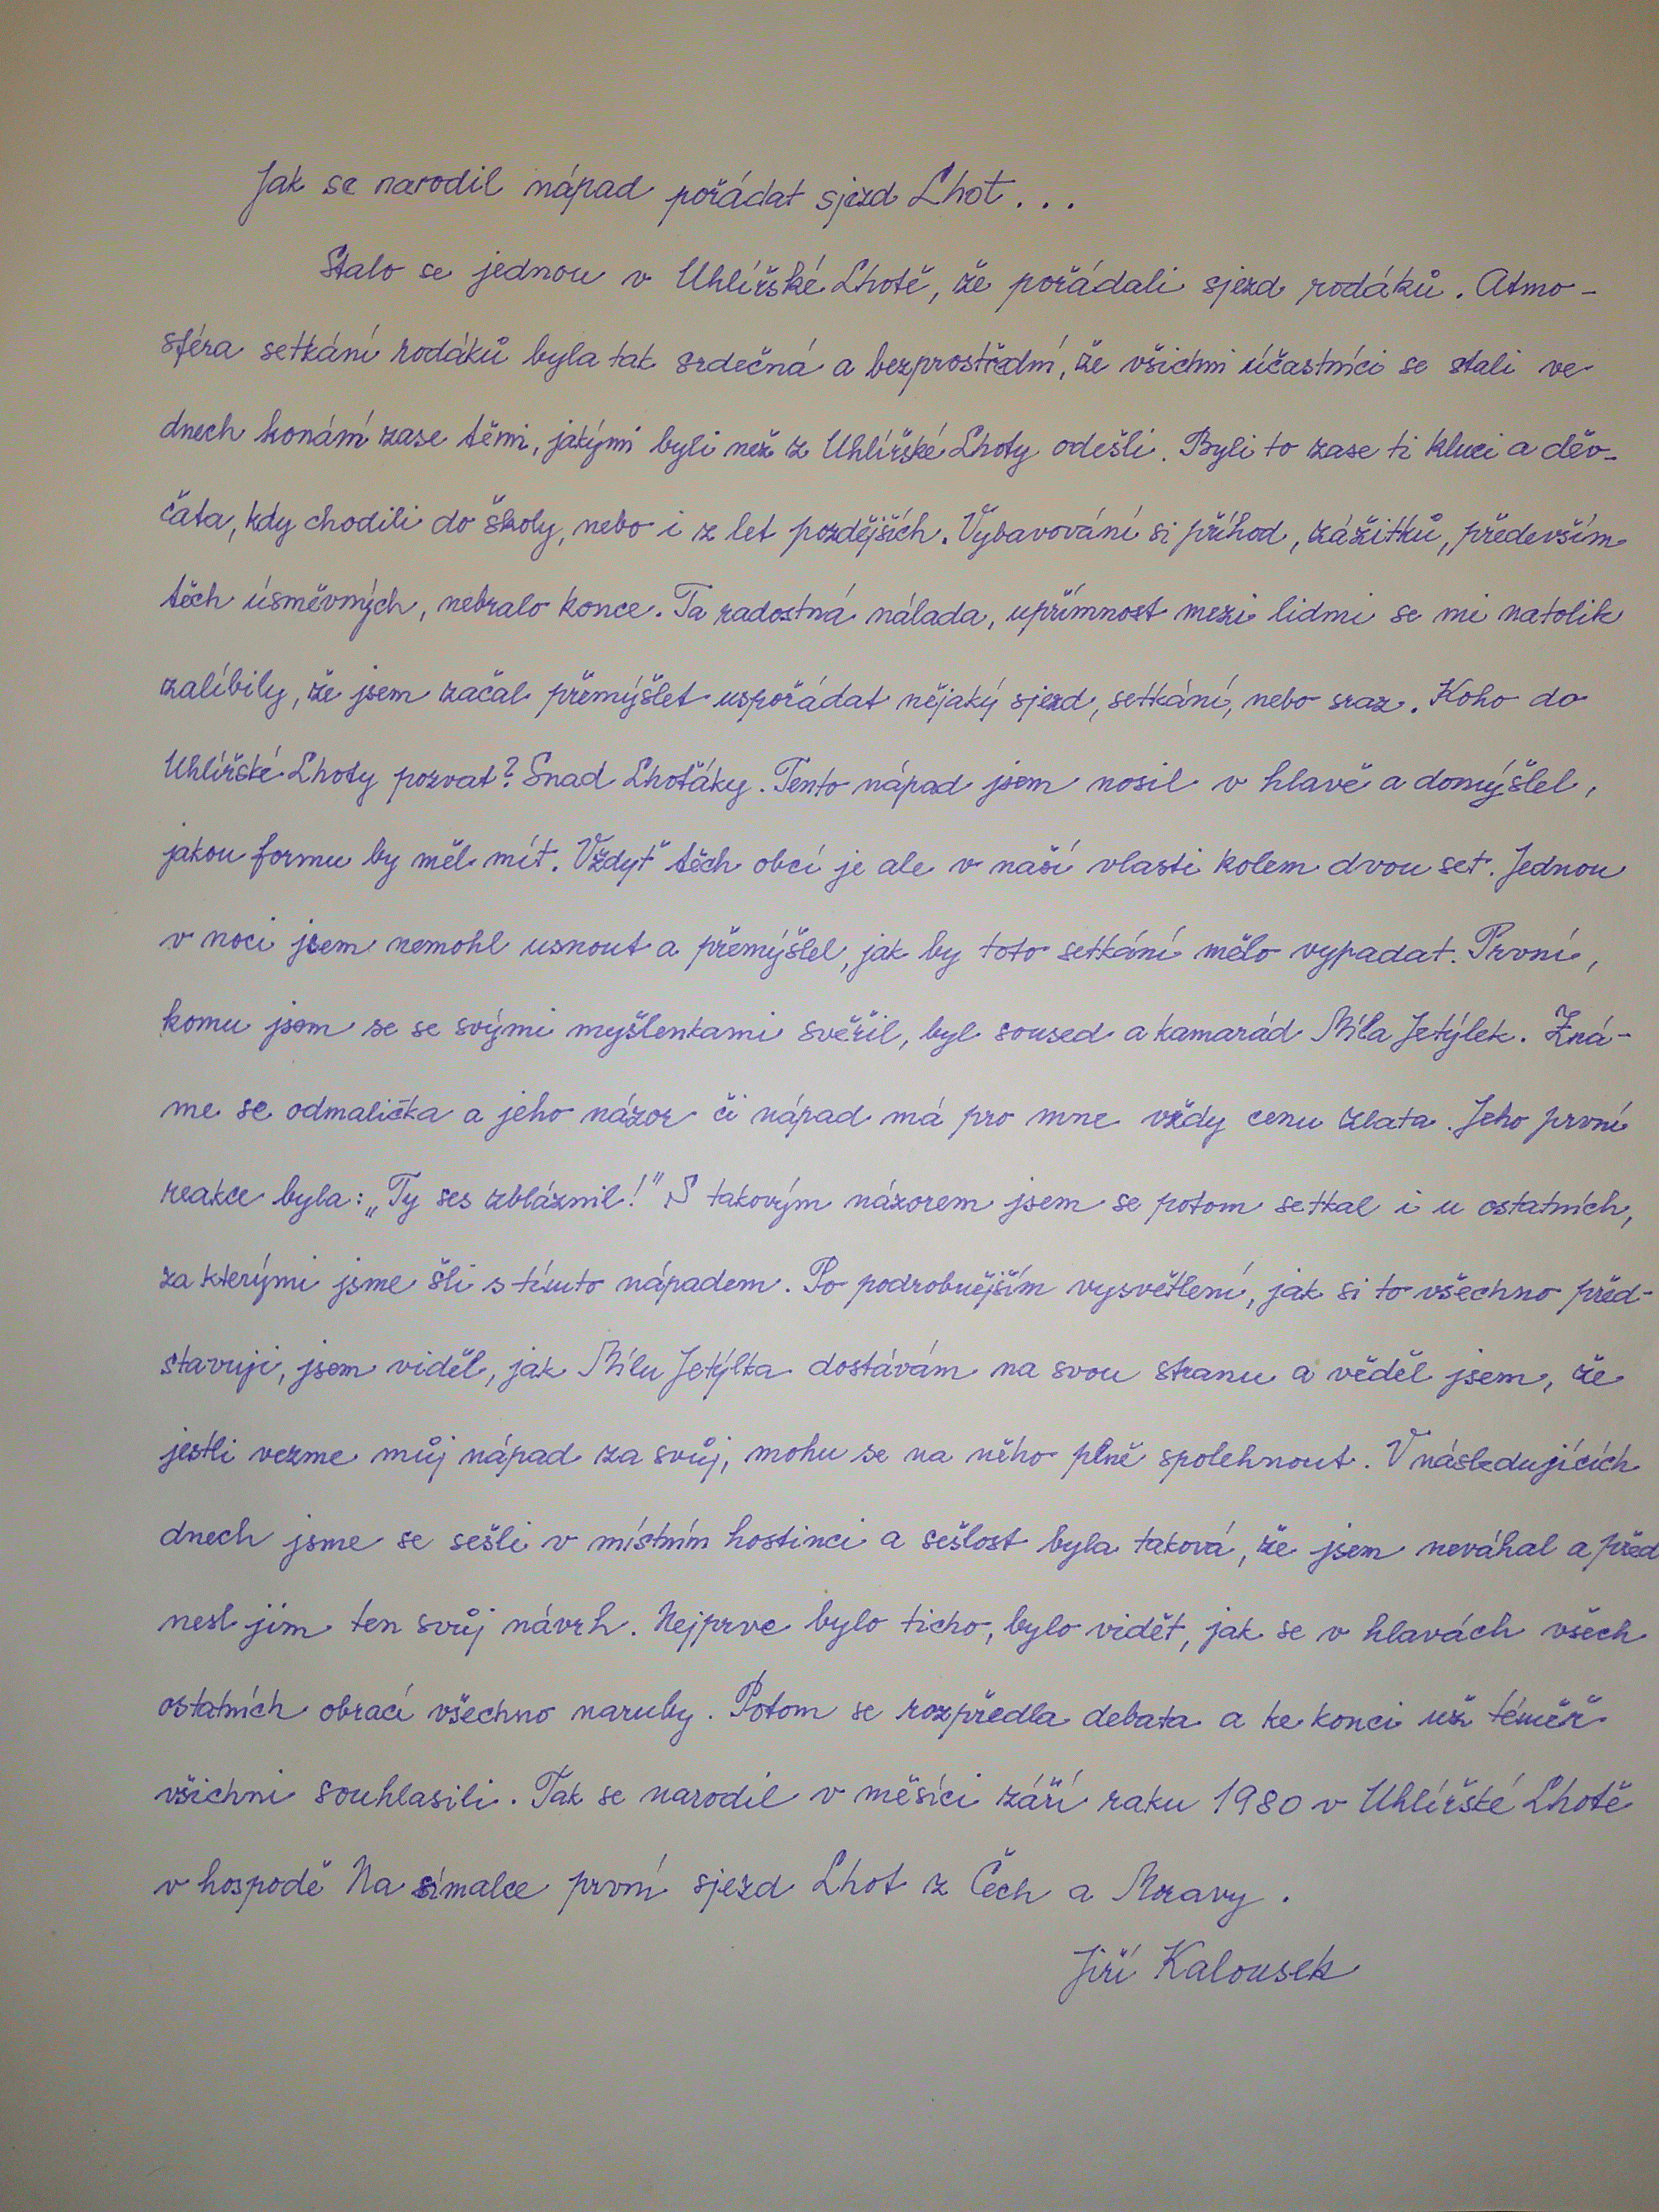 Jak se narodil nápad pořádat sjezd Lhot...
Stalo se jednou v Uhlířské Lhotě, že pořádali sjezd rodáků. Atmo-
sféra setkání rodáků byla tak srdečná a bezprostřední, že všichni účastníci se stali ve
dnech konání zase těmi, jakými byli než z Uhlířské Lhoty odešli. Byli to zase ti kluci a děv-
čata, kdy chodili do školy, nebo i z let pozdějších. Vybavování si příhod, zážitků, především
těch úsměvných, nebralo konce. Ta radostná nálada, upřímnost mezi lidmi se mi natolik
zalíbily, že jsem začal přemýšlet uspořádat nějaký sjezd, setkání, nebo sraz. Koho do
Uhlířské Lhoty pozvat? Snad Lhoťáky. Tento nápad jsem nosil v hlavě a domýšlel,
jakou formu by měl mít. Vždyť těch obcí je ale v naší vlasti kolem dvou set. Jednou
v noci jsem nemohl usnout a přemýšlel, jak by toto setkání mělo vypadat. První,
komu jsem se se svými myšlenkami svěřil, byl soused a kamarád Míla Jetýlek. Zná-
me se odmalička a jeho názor či nápad má pro mne vždy cenu zlata. Jeho první
reakce byla: „Ty ses zbláznil!" S takovým názorem jsem se potom setkal i u ostatních,
za kterými jsme šli s tímto nápadem. Po podrobnějším vysvětlení, jak si to všechno před-
stavuji, jsem viděl, jak Mílu Jetýlka dostávám na svou stranu a věděl jsem, že
jestli vezme můj nápad za svůj, mohu se na něho plně spolehnout. V následujících
dnech jsme se sešli v místním hostinci a sešlost byla taková, že jsem neváhal a před
nesl jim ten svůj návrh. Nejprve bylo ticho, bylo vidět, jak se v hlavách všech
ostatních obrací všechno naruby. Potom se rozpředla debata a ke konci už téměř
všichni souhlasili. Tak se narodil v měsíci září raku 1980 v Uhlířské Lhotě
v hospodě Na símalce první sjezd Lhot z Čech a Moravy.
Jiří Kalousek